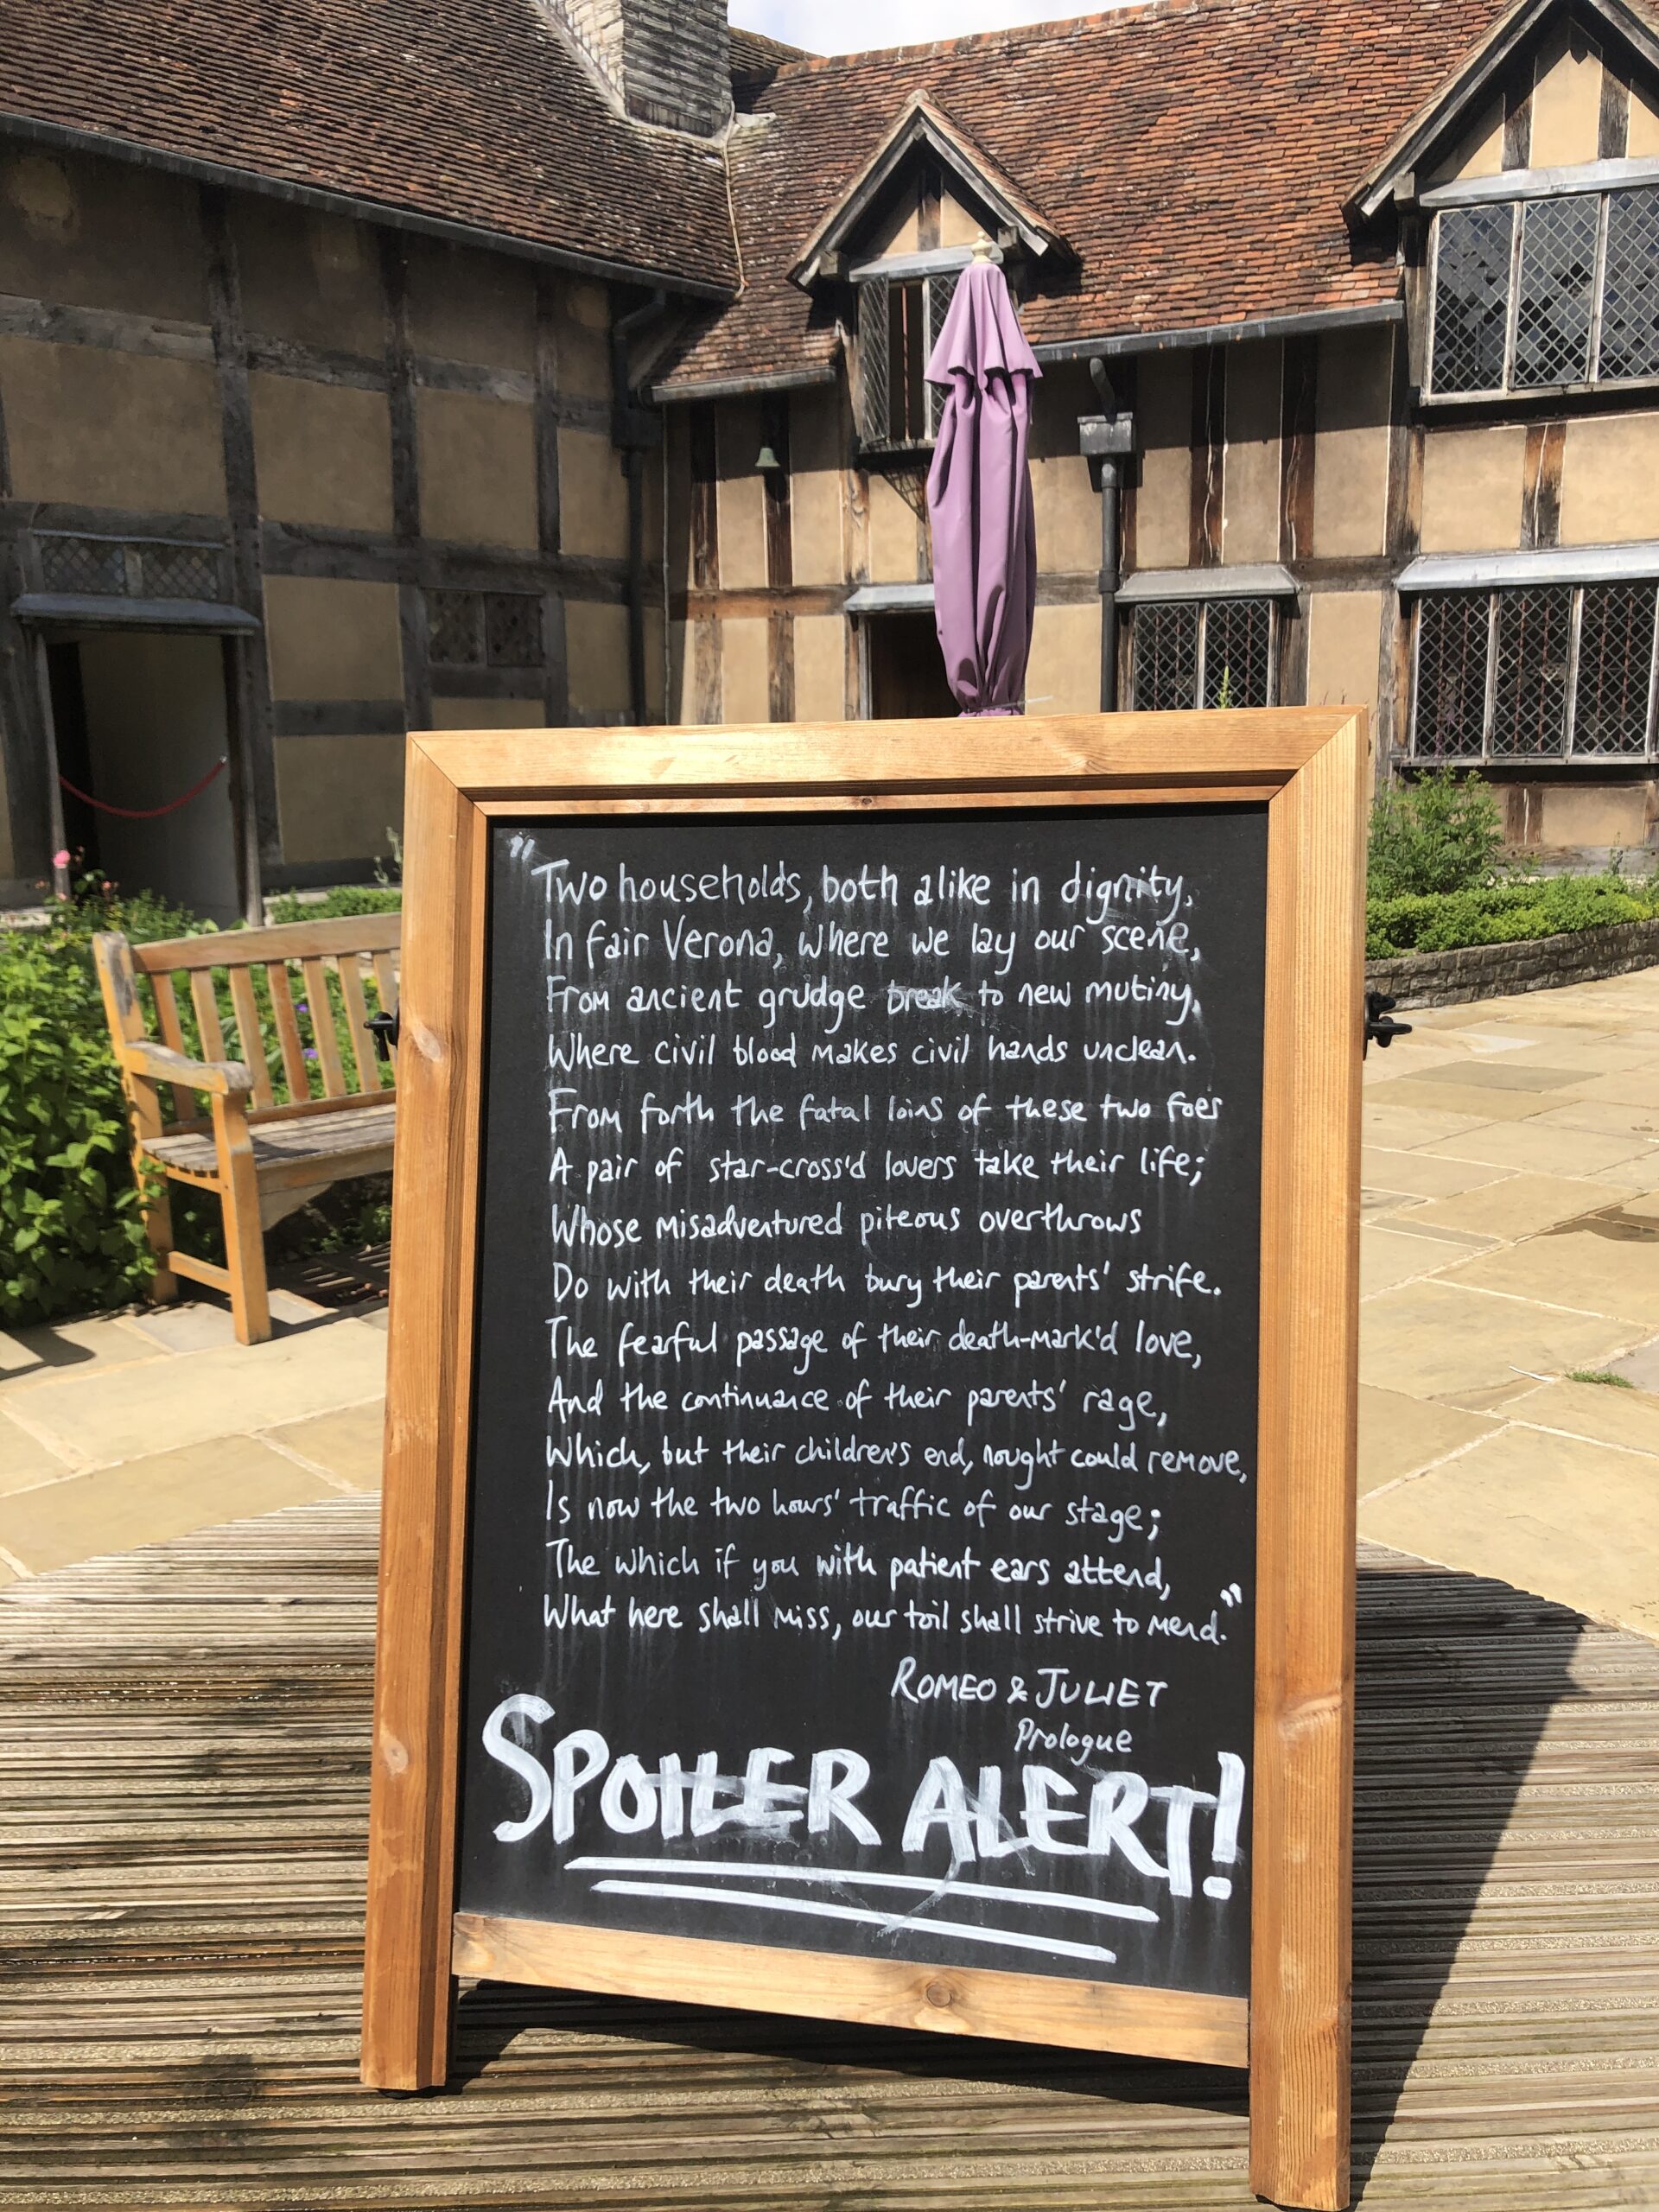 "Two households, both alike in dignity,
In fair Verona, where we lay our scene,
From ancient grudge break to new mutiny,
Where civil blood makes civil hands unclean.
From forth the fatal loins of these two foes
A pair of star-cross'd lovers take their life;
Whose misadventured piteous overthrows
Do with their death bury their parents' strife.
The fearful passage of their death-mark'd love,
And the continuance of their parents' rage,
Which, but their children's end, nought could remove,
Is now the two hours' traffic of our stage;
The which if you with patient ears attend,
What here shall miss, our toil shall strive to mend."
ROMEO & JULIET
Prologue
SPOILER ALERT!